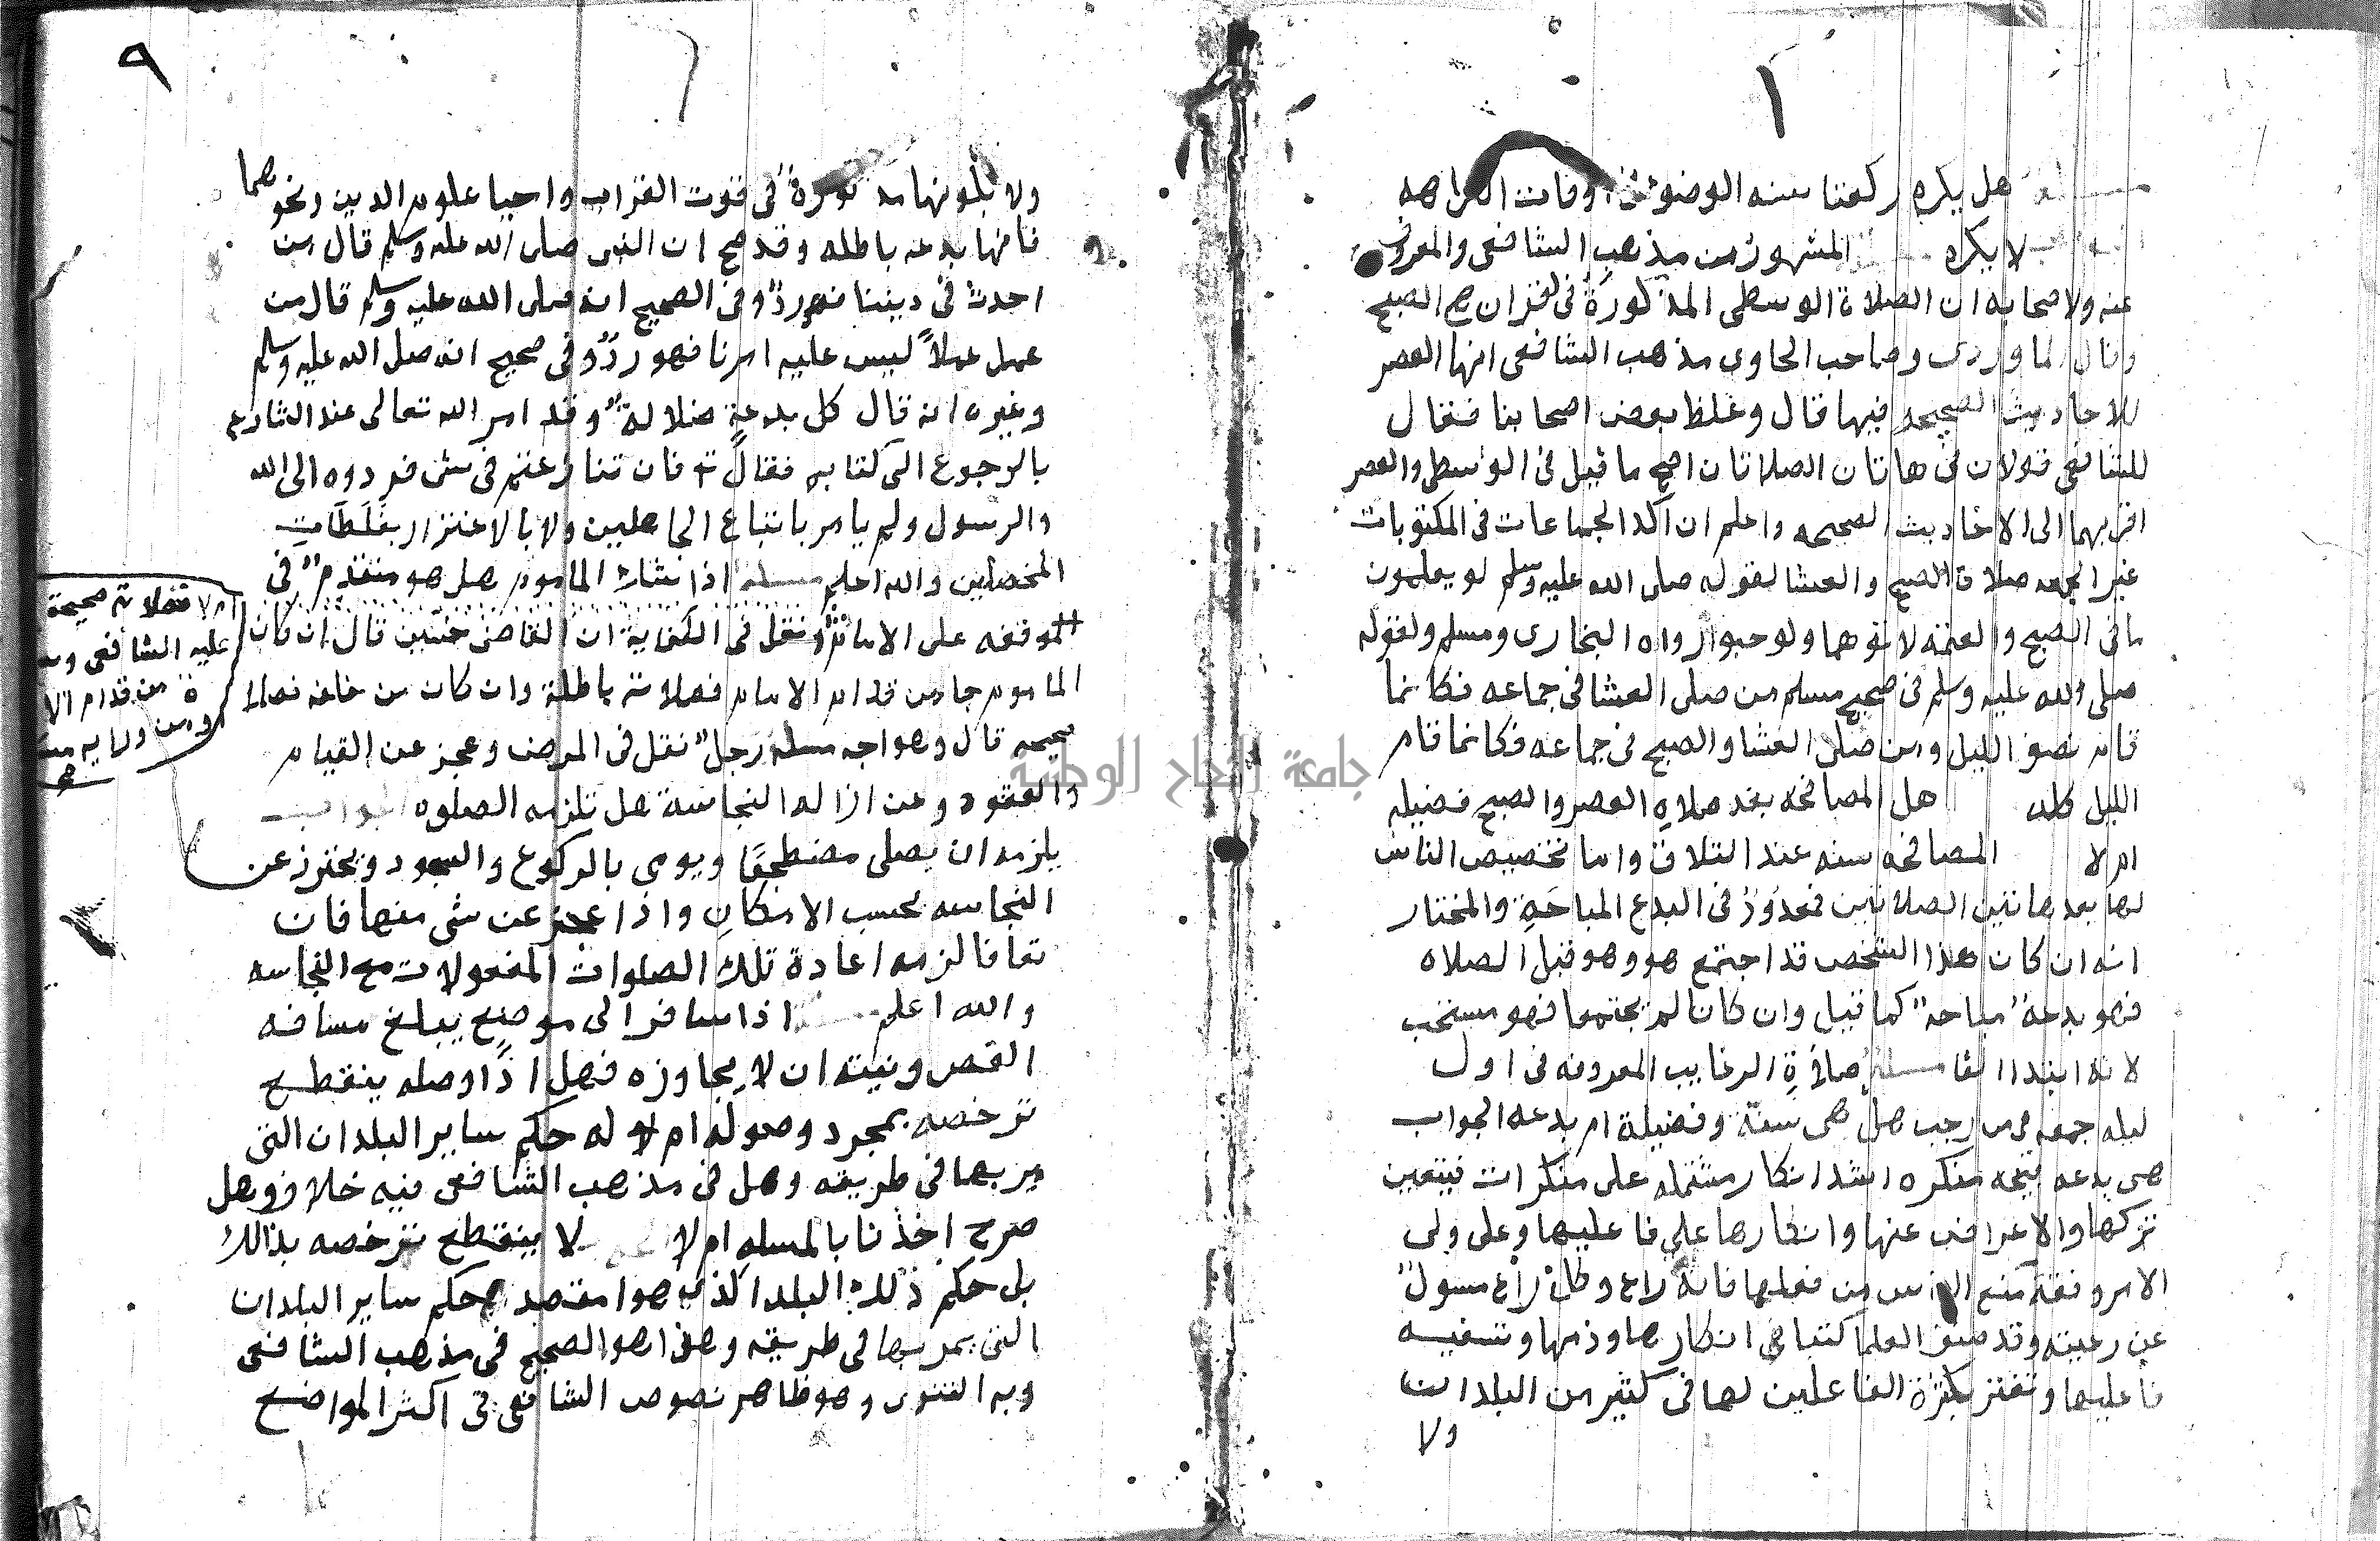 هل يكره ركعتا سنه الوضوء في اوقات الكراهه
لا يكره المشهور من مذهب الشافعى والمعروف
عنه ولاصحابه ان الصلاة الوسطى المذكورة فى القران هي الصبح
وقال الماوردى وصاحب الحاوى مذهب الشافعى انها العصر
للاحاديث الصحيحه فيها قال وغلظ بعض اصحابنا فقال
للشافعى قولان فى هاتان الصلاتان اصح ما قيل فى الوسطى والعصر
اقربهما الى الاحاديث الصحيحه واعلم ان اكد الجماعات فى المكتوبات
غير الجمعه صلاة الصبح والعشا لقوله صلى الله عليه وسلم لو يعلمون
ما فى الصبح والعتمه لاتوهما ولو حبوا رواه البخارى ومسلم ولقوله
صلى الله عليه وسلم فى صحيح مسلم من صلى العشا فى جماعه فكانما
قام نصف الليل ومن صلى العشا والصبح فى جماعه فكانما قام
الليل كله هل المصافحه بعد صلاه العصر والصبح فضيله
ام لا المصافحه سنه عند التلاق واما تخصيص الناس
لها بعد هاتين الصلاتين فمعدود فى البدع المباحة والمختار
انه ان كان هذا الشخص قد اجتمع هو وهو قبل الصلاه
فهو بدعة مباحة كما قيل وان كانا لم يجتمعا فهو مستحب
لانه ابتدا اللقا مسلة صلاة الرغايب المعروفه فى اول
ليله جمعه من رجب هل هى سنة وفضيلة ام بدعه الجواب
هى بدعه قبيحه منكره اشد انكار مشتمله على منكرات فيتعين
تركها والاعراض عنها وانكارها على فاعليها وعلى ولى
الامر وفقه منع الناس من فعلها فانه راع وكل راع مسول
عن رعيته وقد صنف العلما كتبا فى انكارها وذمها وتسفيه
فاعليها وتغتر بكثرة الفاعلين لها فى كثير من البلدان
ولا
٩
ولا بكونها مذكورة فى قوت القراب واحيا علوم الدين ونحوهما
فانها بدعه باطله وقد صح ان النبى صلى الله عليه وسلم قال من
احدث فى ديننا فهو رد وفى الصحيح انه صلى الله عليه وسلم قال من
عمل عملاً ليس عليه امرنا فهو رد وفى صحيح انه صلى الله عليه وسلم
وغيره انه قال كل بدعة ضلالة وقد امر الله تعالى عند التنازع
بالرجوع الى كتابه فقال فان تنازعتم فى شى فردوه الى الله
والرسول ولم يامر باتباع الجاهلين ولا بالاغترار بغلطات
المخطيين والله اعلم مسلة اذا شك الماموم هل هو متقدم فى
الموقفه على الامام ونقل فى الكفاية ان القاضى حسين قال ان كان
الماموم جا من قدام الامام فصلاته باطلة وان كان من خلفه فصلاته
صحيحه قال وهو اجه مسلة رجل ثقل فى المرض وعجز عن القيام
والقعود وعن ازاله النجاسة هل تلزمه الصلوه الجواب
يلزمه ان يصلى مضطجعًا ويومى بالركوع والسجود ويحترز عن
النجاسه بحسب الامكان واذا عجز عن شى منها فان
تعافا لزمه اعادة تلك الصلوات المفعولات مع النجاسه
والله اعلم اذا سافر الى موضع يبلغ مسافه
القصر ونيته ان لا يجاوزه فهل اذا وصله ينقطع
ترخصه بمجرد وصوله ام لا وله حكم ساير البلدان التى
مر بها فى طريقه وهل فى مذهب الشافعى فيه خلاف وهل
صرح بالمسله ام لا لا ينقطع ترخصه بذالك
بل حكم ذلك البلد الذى هو مقصده حكم ساير البلدان
التى يمر بها فى طريقه وهذا هو الصحيح فى مذهب الشافعى
وبه الفتوى وهو ظاهر نصوص الشافعى فى اكثر المواضع
ام لا فصلاته صحيحة
عليه الشافعى
من قدام
صح
جامعة النجاح الوطنية